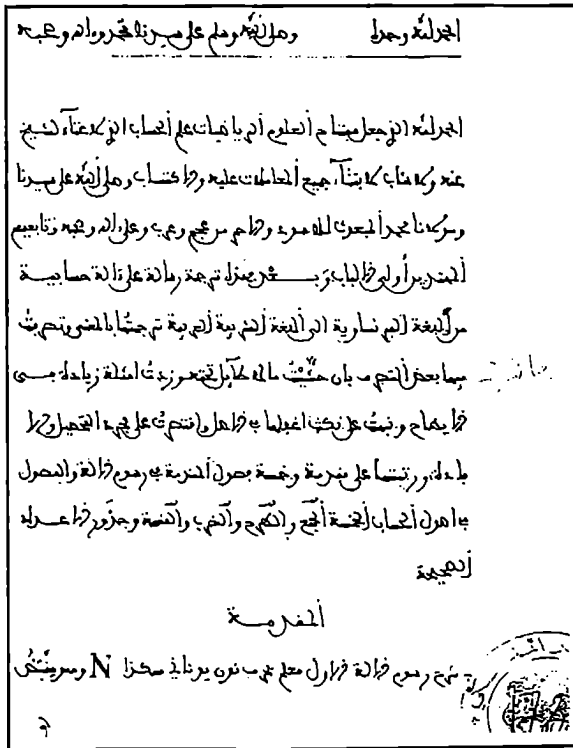 الحمد لله وحده وصلى الله وسلم على سيدنا محمد وءاله وصحبه
الحمد لله الذي جعل مفتاح العلوم الرياضيات علم الحساب الذي لا غناء لشيخ
عنه ولا شاب لابتناء جميع المعاملات عليه والاكتساب وصلى الله على سيدنا
ومولانا محمد المبعوث للاسود والاحمر من عجم وعرب وعلى اله وصحبه وتابعيهم
المهتدين أولي الالباب وبعد هذه ترجمة رسالة على ءالة حسابية
من اللغة الفرنساوية الى اللغة الغربية العربية ترجمتها بالمعنى وتصرفت
فيها بعض التصرف بان حذفت ما لا طائل تحته وزدت امثلة زيادة في
الايضاح ونبهت على نكث اغفلها في الاصل واقتصرت على مجرد التحصيل والا
فادة ورتبتها على مقدمة وخمسة فصول المقدمة في رسوم الالة والفصول
في اصول الحساب الخمسة الجمع والطرح والضرب والقسمة وجذور الاعداد
الصحيحة
المقدمة
شرح رسوم الالة الاول معلم بحرف نون يوناني هكذا N وهو